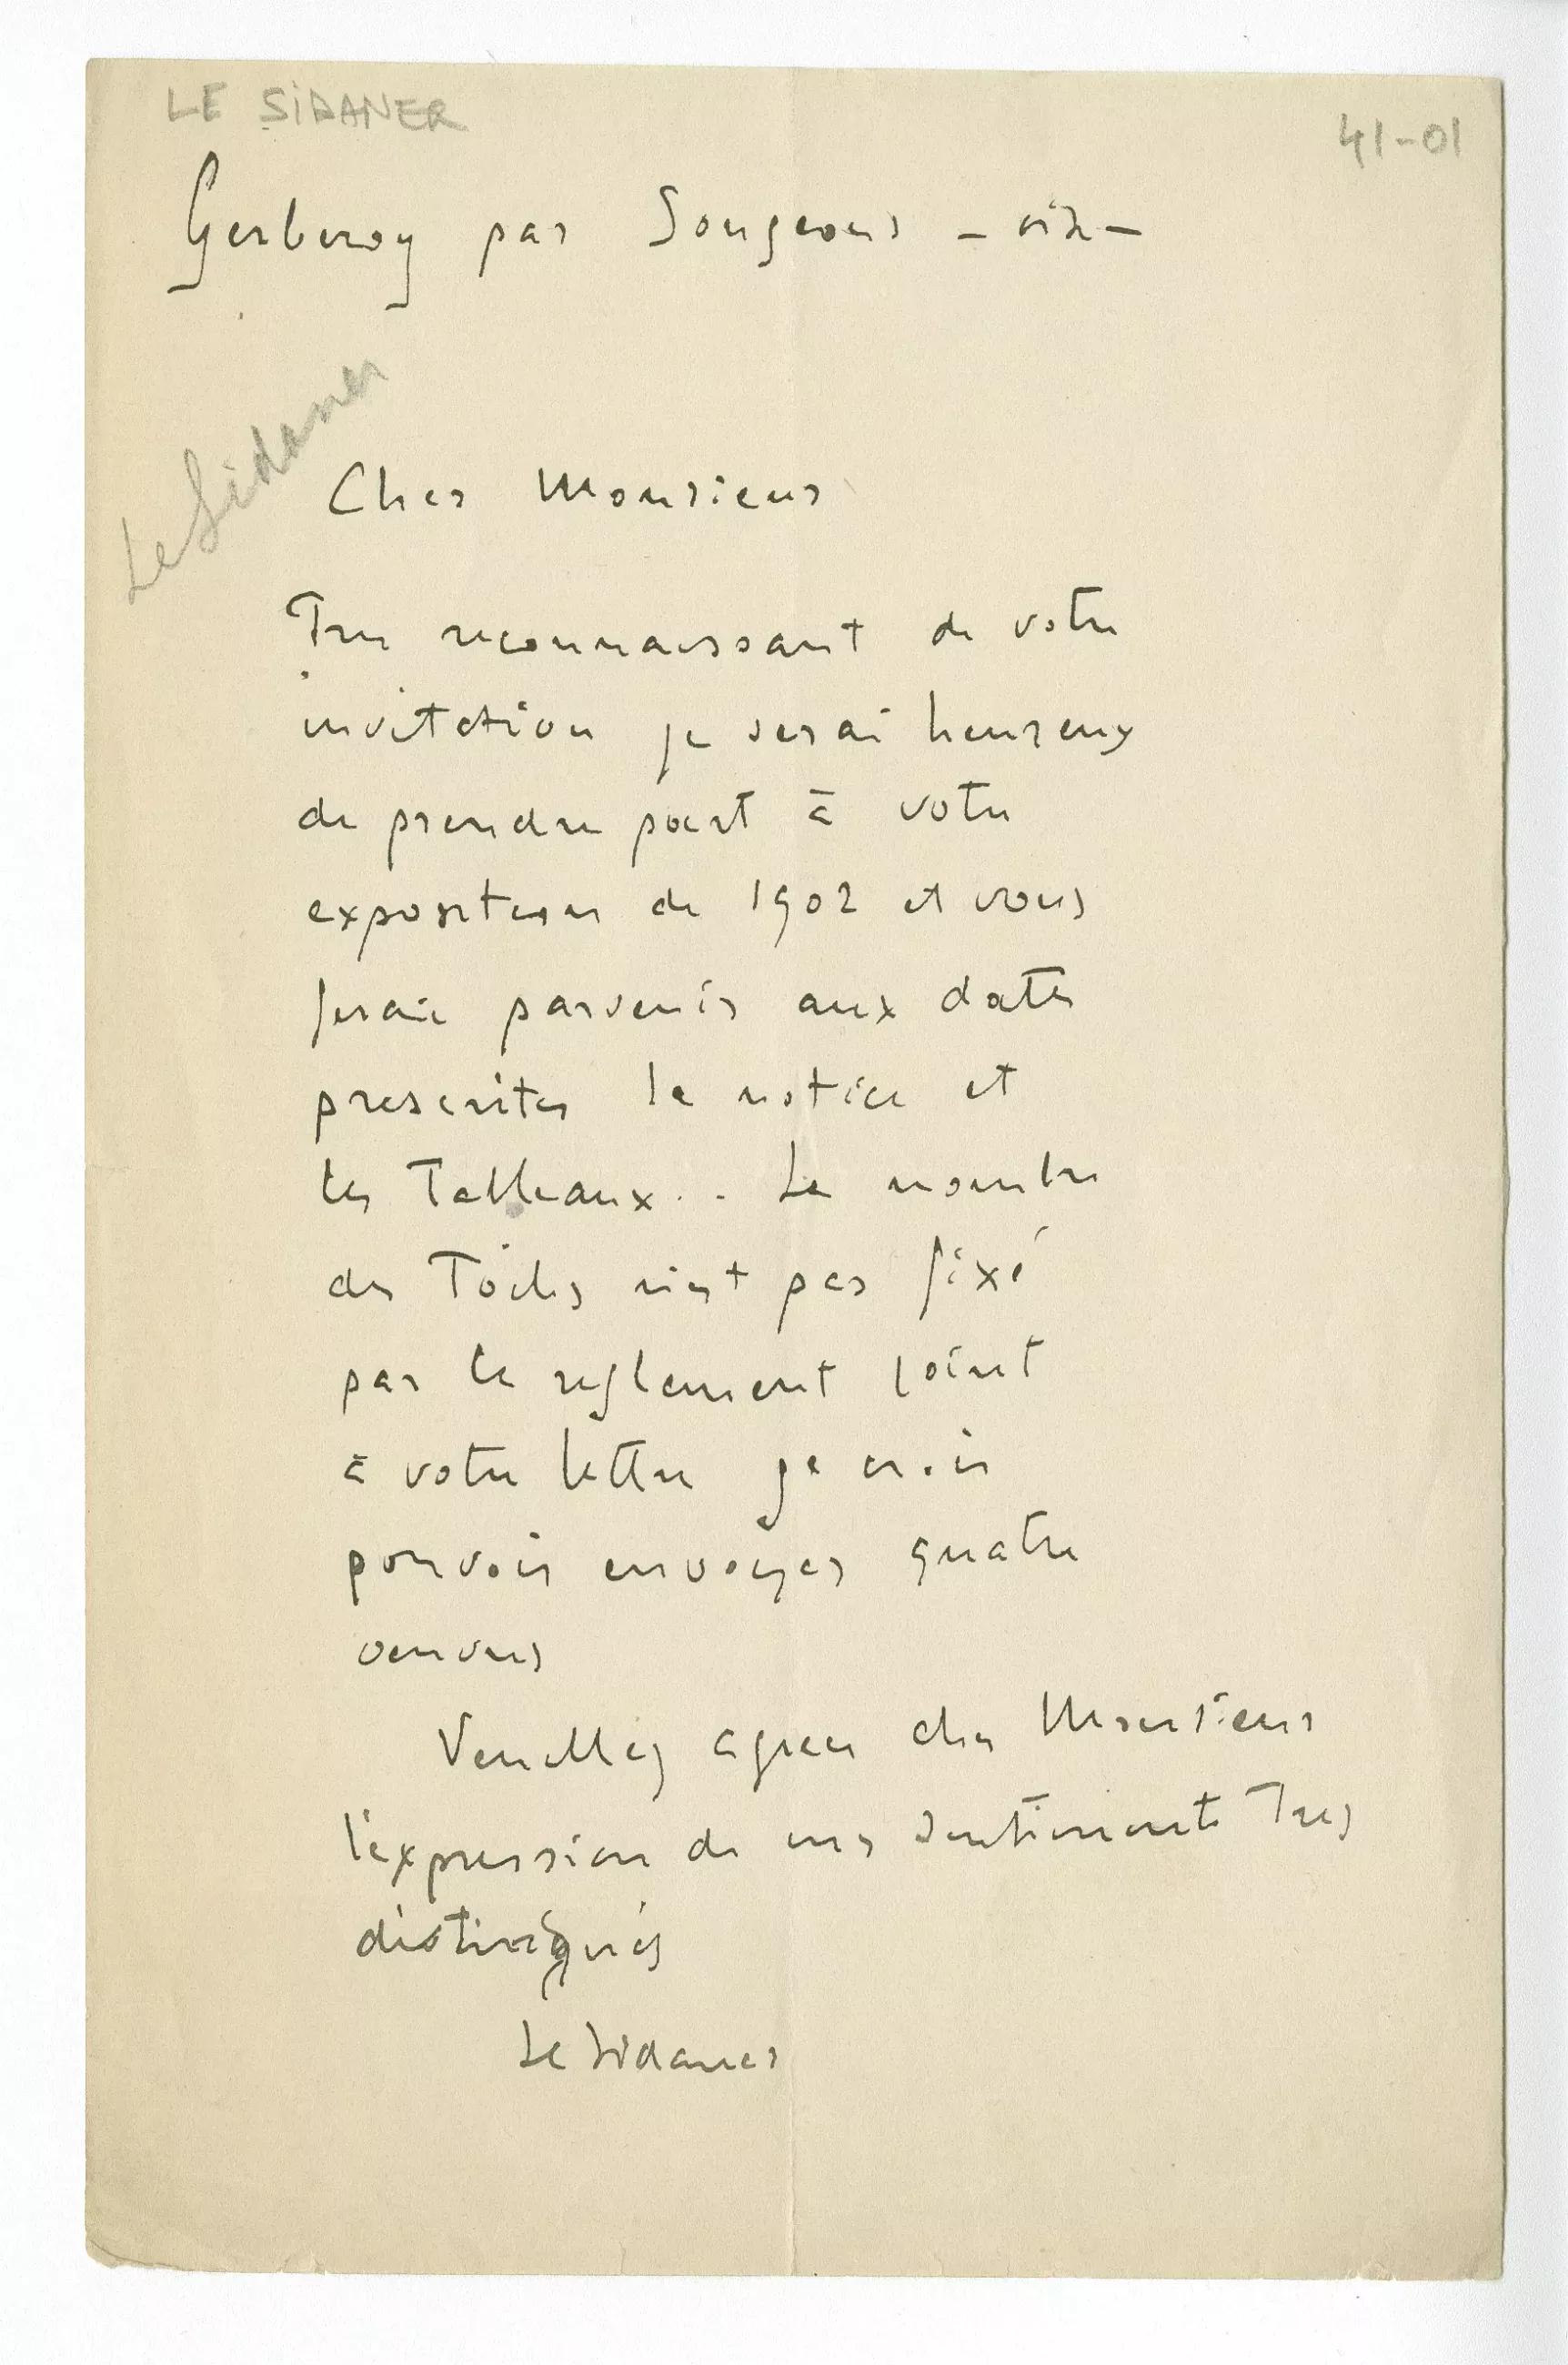 LE SIDANER
41-01
Gerberoy par Songeons - oise -
Le Sidaner
Cher Monsieur
Tres reconnaissant de votre
invitation je serai heureux
de prendre part à votre
exposition de 1902 et vous
ferai parvenir aux dates
prescrites la notice et
les Tableaux.. Le nombre
des Toiles n'est pas fixé
par le reglement joint
à votre lettre je crois
pouvoir envoyer quatre
oeuvres
Veuillez agreer cher Monsieur
l'expression de mes sentiments Tres
distingués
Le Sidaner